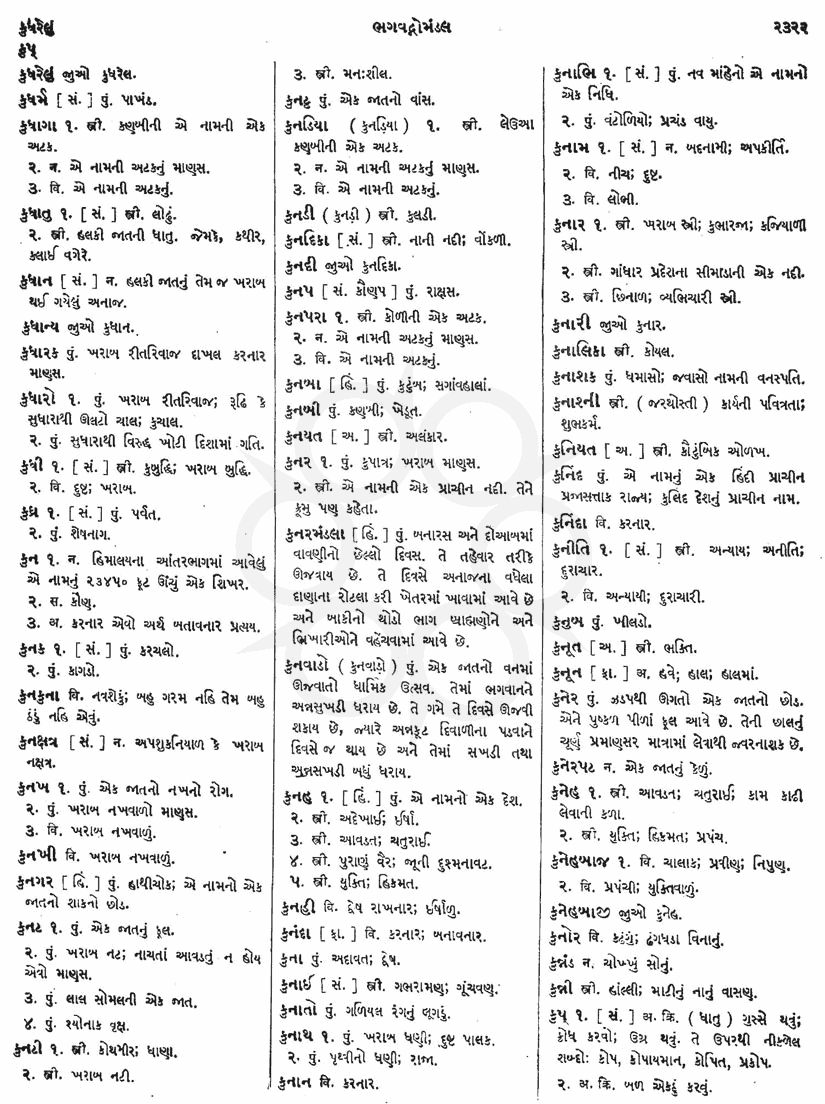 કુધરેલું
કુપ્
ભગવદ્ગોમંડલ
૨૩૨૨
કુધરેલું જુઓ કુધરેલ.
કુધર્મ [ સં. ] પું. પાખંડ.
કુધાગા ૧. સ્ત્રી. કણબીની એ નામની એક
અટક.
૨. ન. એ નામની અટકનું માણસ.
૩. વિ. એ નામની અટકનું.
કુધાતુ ૧. [ સં. ] સ્ત્રી. લોઢું.
૨. સ્ત્રી. હલકી જાતની ધાતુ. જેમકે, કથીર,
કલાઈ વગેરે.
કુધાન [ સં. ] ન. હલકી જાતનું તેમ જ ખરાબ
થઈ ગયેલું અનાજ.
કુધાન્ય જુઓ કુધાન.
કુધારક પું. ખરાબ રીતરિવાજ દાખલ કરનાર
માણસ.
કુધારો ૧. પું. ખરાબ રીતરિવાજ; રૂઢિ કે
સુધારાથી ઊલટો ચાલ; કુચાલ.
૨. પું. સુધારાથી વિરુદ્ધ ખોટી દિશામાં ગતિ.
કુધી ૧. [ સં. ] સ્ત્રી. કુબુદ્ધિ; ખરાબ બુદ્ધિ.
૨. વિ. દુષ્ટ; ખરાબ.
કુધ્ર ૧. [ સં. ] પું. પર્વત.
૨. પું. શેષનાગ.
કુન ૧. ન. હિમાલયના આંતરભાગમાં આવેલું
એ નામનું ૨૩૪૫૦ ફૂટ ઊંચું એક શિખર.
૨. સ. કૌણ.
૩. અ. કરનાર એવો અર્થ બતાવનાર પ્રત્યય.
કુનક ૧. [ સં. ] પું. કરચલો.
૨. પું. કાગડો.
કુનકુના વિ. નવશેકું; બહુ ગરમ નહિ તેમ બહુ
ઠંડું નહિ એવું.
કુનક્ષત્ર [ સં. ] ન. અપશુકનિયાળ કે ખરાબ
નક્ષત્ર.
કુનખ ૧. પું. એક જાતનો નખનો રોગ.
૨. પું. ખરાબ નખવાળો માણસ.
૩. વિ. ખરાબ નખવાળું.
કુનખી વિ. ખરાબ નખવાળું.
કુનગર [ હિં. ] પું. હાથીચોક; એ નામનો એક
જાતનો શાકનો છોડ.
કુનટ ૧. પું. એક જાતનું ફૂલ.
૨. પું. ખરાબ નટ; નાચતાં આવડતું ન હોય
એવો માણસ.
૩. પું. લાલ સોમલની એક જાત.
૪. પું. શ્યોનાક વૃક્ષ.
કુનટી ૧. સ્ત્રી. કોથમીર; ધાણા.
૨. સ્ત્રી. ખરાબ નટી.
૩. સ્ત્રી. મનઃશીલ.
કુનટ્ટ પું. એક જાતનો વાંસ.
કુનડિયા ( કુનડ઼િયા ) ૧. સ્ત્રી. લેઉઆ
કણબીની એક અટક.
૨. ન. એ નામની અટકનું માણસ.
૩. વિ. એ નામની અટકનું.
કુનડી ( કુનડ઼ી ) સ્ત્રી. કુલડી.
કુનદિકા [ સં. ] સ્ત્રી. નાની નદી; વોંકળી.
કુનદી જુઓ કુનદિકા.
કુનપ [ સં. કૌણપ ] પું. રાક્ષસ.
કુનપરા ૧. સ્ત્રી. કોળીની એક અટક.
૨. ન. એ નામની અટકનું માણસ.
૩. વિ. એ નામની અટકનું.
કુનબા [ હિં. ] પું. કુટુંબ; સગાંવહાલાં.
કુનબી પું. કણબી; ખેડૂત.
કુનયત [ અ. ] સ્ત્રી. અલંકાર.
કુનર ૧. પું. કુપાત્ર; ખરાબ માણસ.
૨. સ્ત્રી. એ નામની એક પ્રાચીન નદી. તેને
ક્રૂમુ પણ કહેતા.
કુનરમંડલા [ હિં. ] પું. બનારસ અને દોઆબમાં
વાવણીનો છેલ્લો દિવસ. તે તહેવાર તરીકે
ઊજવાય છે. તે દિવસે અનાજના વધેલા
દાણાના રોટલા કરી ખેતરમાં ખાવામાં આવે છે
અને બાકીનો થોડો ભાગ બ્રાહ્મણોને અને
ભિખારીઓને વહેંચવામાં આવે છે.
કુનવાડો ( કુનવાડ઼ો ) પું. એક જાતનો વનમાં
ઊજવાતો ધાર્મિક ઉત્સવ. તેમાં ભગવાનને
અન્નસુખડી ધરાય છે. તે ગમે તે દિવસે ઊજવી
શકાય છે, જ્યારે અન્નકૂટ દિવાળીના પડવાને
દિવસે જ થાય છે અને તેમાં સખડી તથા
અન્નસખડી બધું ધરાય.
કુનહ ૧. [ હિં. ] પું. એ નામનો એક દેશ.
૨. સ્ત્રી. અદેખાઈ; ઈર્ષા.
૩. સ્ત્રી. આવડત; ચતુરાઈ.
૪. સ્ત્રી. પુરાણું વૈર; જૂની દુશ્મનાવટ.
૫. સ્ત્રી. યુક્તિ; હિકમત.
કુનહી વિ. દ્વેષ રાખનાર; ઈર્ષાળુ.
કુનંદા [ ફા. ] વિ. કરનાર; બનાવનાર.
કુના પું. અદાવત; દ્વેષ.
કુનાઈ [ સં. ] સ્ત્રી. ગભરામણ; ગૂંચવણ.
કુનાતો પું. ગળિયલ રંગનું લૂગડું.
કુનાથ ૧. પું. ખરાબ ધણી; દુષ્ટ પાલક.
૨. પું. પૃથ્વીનો ધણી; રાજા.
કુનાન વિ. કરનાર.
કુનાભિ ૧. [ સં. ] પું. નવ માંહેનો એ નામનો
એક નિધિ.
૨. પું. વંટોળિયો; પ્રચંડ વાયુ.
કુનામ ૧. [ સં. ] ન. બદનામી; અપકીર્તિ.
૨. વિ. નીચ; દુષ્ટ.
૩. વિ. લોભી.
કુનાર ૧. સ્ત્રી. ખરાબ સ્ત્રી; કુભારજા; કજિયાળી
સ્ત્રી.
૨. સ્ત્રી. ગાંધાર પ્રદેશના સીમાડાની એક નદી.
૩. સ્ત્રી. છિનાળ; વ્યભિચારી સ્ત્રી.
કુનારી જુઓ કુનાર.
કુનાલિકા સ્ત્રી. કોયલ.
કુનાશક પું. ધમાસો; જવાસો નામની વનસ્પતિ.
કુનારની સ્ત્રી. ( જરથોસ્તી ) કાર્યની પવિત્રતા;
શુભકર્મ.
કુનિયત [ અ. ] સ્ત્રી. કૌટુંબિક ઓળખ.
કુનિંદ પું. એ નામનું એક હિંદી પ્રાચીન
પ્રજાસત્તાક રાજ્ય; કુલિંદ દેશનું પ્રાચીન નામ.
કુનિંદા વિ. કરનાર.
કુનીતિ ૧. [ સં. ] સ્ત્રી. અન્યાય; અનીતિ;
દુરાચાર.
૨. વિ. અન્યાયી; દુરાચારી.
કુનુબ પું. ખીલડો.
કુનૂત [ અ. ] સ્ત્રી. ભક્તિ.
કુનૂન [ ફા. ] અ. હવે; હાલ; હાલમાં.
કુનેર પું. ઝડપથી ઊગતો એક જાતનો છોડ.
એને પુષ્કળ પીળાં ફૂલ આવે છે. તેની છાલનું
ચૂર્ણ પ્રમાણસર માત્રામાં લેવાથી જ્વરનાશક છે.
કુનેરપટ ન. એક જાતનું દેળું.
કુનેહ ૧. સ્ત્રી. આવડત; ચતુરાઈ; કામ કાઢી
લેવાની કળા.
૨. સ્ત્રી. યુક્તિ; હિકમત; પ્રપંચ.
કુનેહબાજ ૧. વિ. ચાલાક; પ્રવીણ; નિપુણ.
૨. વિ. પ્રપંચી; યુક્તિવાળું.
કુનેહબાજી જુઓ કુનેહ.
કુનોર વિ. કઢંગું; ઢંગધડા વિનાનું.
કુન્નંડ ન. ચોખ્ખું સોનું.
કુન્ની સ્ત્રી. હાંલ્લી; માટીનું નાનું વાસણ.
કુપ્ ૧. [ સં. ] અ. ક્રિ. ( ધાતુ ) ગુસ્સે થવું;
ક્રોધ કરવો; ઉગ્ર થવું. તે ઉપરથી નીકળેલ
શબ્દોઃ કોપ, કોપાયમાન, કોપિત, પ્રકોપ.
૨. અ. ક્રિ. બળ એકઠું કરવું.